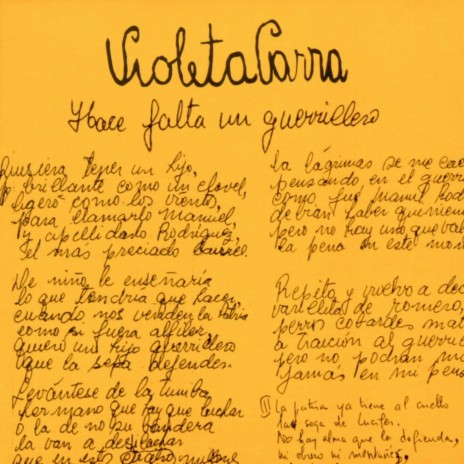 Violeta Parra
Hace falta un guerrillero
Quisiera tener un hijo,
brillante como un clavel,
ligero como los vientos,
para llamarlo Manuel,
y apellidarlo Rodríguez,
el mas preciado laurel.
De niño le enseñaría
lo que tendría que hacer,
cuando nos venden la patria
como si fuera alfiler,
quiero un hijo guerrillero
que la sepa defender.
Levántese de la tumba,
hermano que hay que luchar
o la de no su bandera
la van a
que en estos
la lágrimas se me cae
pensando en el guerri
como fue Manuel Rod
debran haber quinien
pero no hay uno que val
la pena en este mom
Repito y vuelvo a dec
varillita de romero,
perros cobardes mat
a traición al guerri
pero no podran ma
jamás en mi pens
II La patria ya tiene al cuello
la soga de Lucifer.
No hay alma que la defienda,
ni obrero ni montañes,